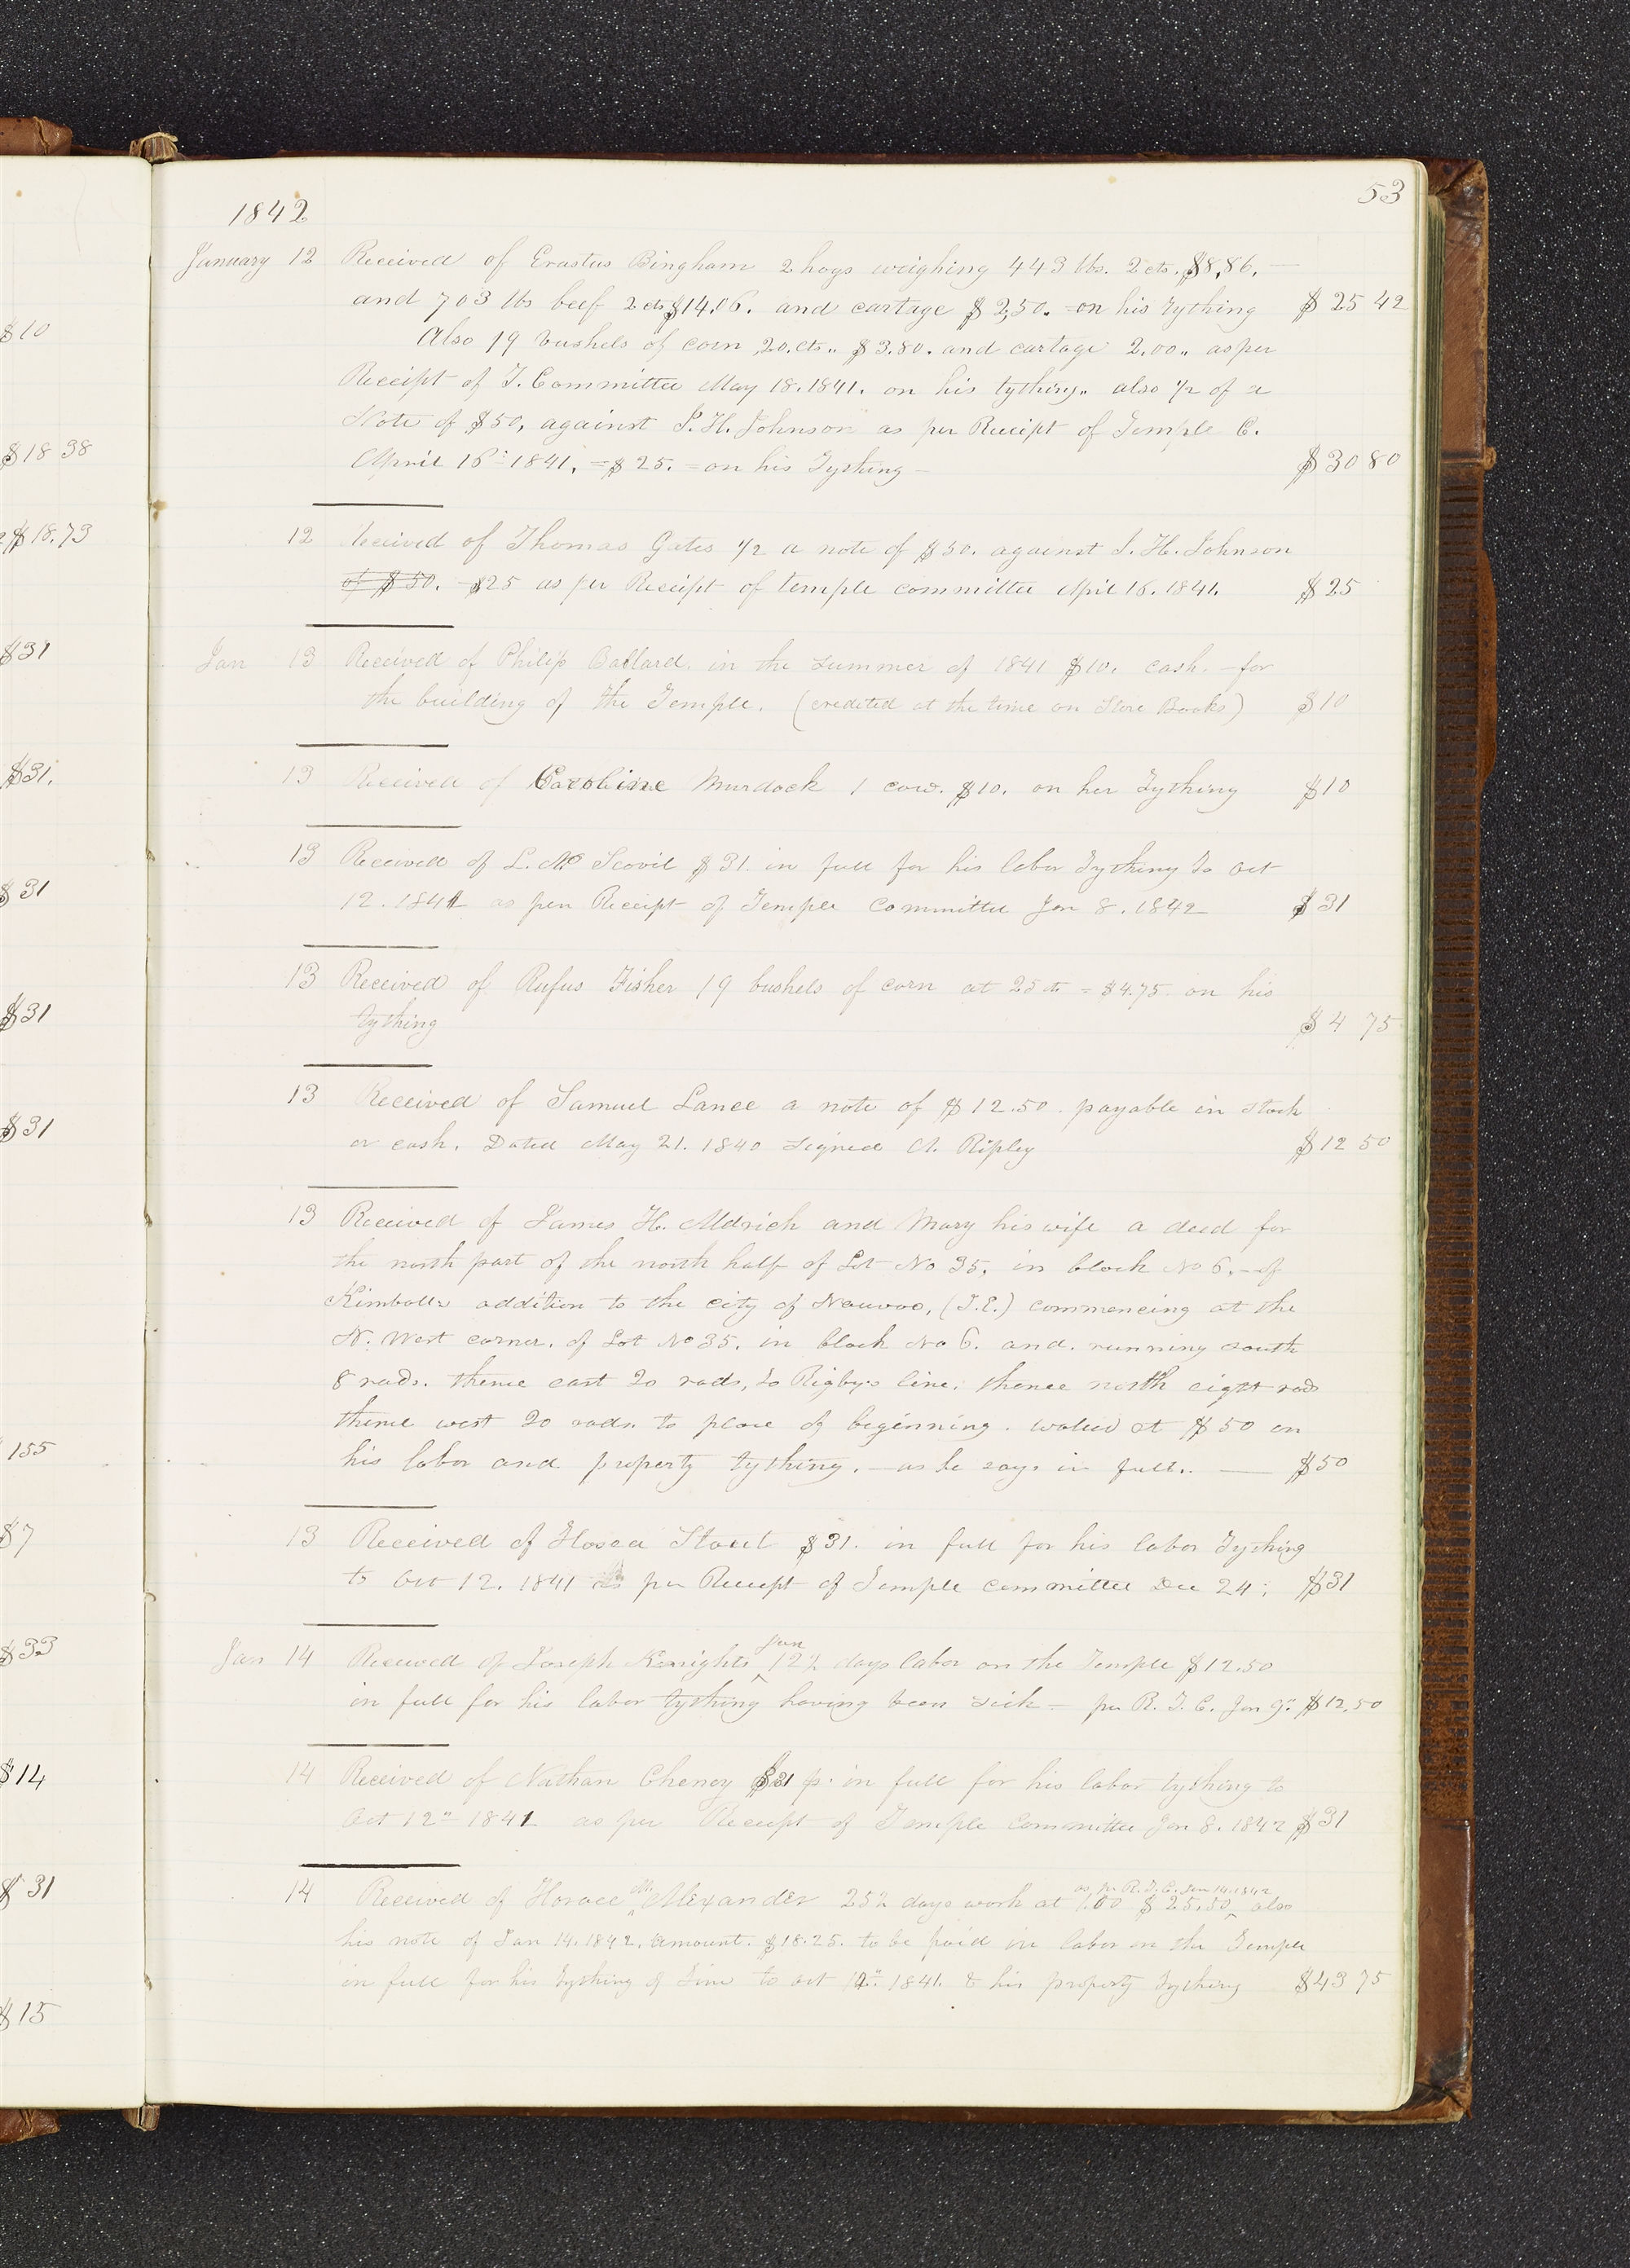 $10
$18 38
$18.73
$31
$31.
$31
$31
$31
155
$7
$33
$14
$31
$15
53
1842
January 12 Received of Erastus Bingham 2 hogs weighing 443 lbs. 2 cts. $8,86. —
and 703 lbs beef 2 cts $14.06. and cartage $2,50. = on his Tything $25 42
Also 19 bushels of corn 20. cts.. $3.80. and cartage 2.00.. as per
Receipt of T. Committee May 18. 1841. on his tything.. also 1/2 of a
Note of $50, against P. H. Johnson as per Receipt of Temple C.
April 16: 1841. = $25. = on his Tything — $30 80
12 Received of Thomas Gates 1/2 a note of $50. against P. H. Johnson
of $50. — $25 as per Receipt of temple committee April 16. 1841. $25
Jan 13 Received of Philip Ballard. in the summer of 1841 $10. cash. — for
the building of the Temple. (credited at the time on Store Books) $10
13 Received of Caroline Murdock 1 cow. $10. on her Tything $10
13 Received of L. N. Scovil $31. in full for his labor Tything to Oct
12. 1841 as per Receipt of Temple Committee Jan 8. 1842 $31
13 Received of Rufus Fisher 19 bushels of corn at 25 cts = $4.75 on his
tything $4 75
13 Received of Samuel Lance a note of $12.50. payable in stock
or cash. Dated May 21. 1840 signed A. Ripley $12 50
13 Received of James H. Aldrich and Mary his wife a deed for
the north part of the north half of Lot No 35. in block No 6. — of
Kimballs addition to the city of Nauvoo, (I.E.) commencing at the
N. West corner. of Lot No 35. in block No 6. and. running south
8 rads. thence east 20 rads, to Rigby's line. thence north eight rods
thence west 20 rads. to place of beginning. valued at $50 on
his labor and property tything. — as he says in full.. — $50
13 Received of Hosea Stout $31. in full for his labor Tything
to Oct 12. 1841 as per Receipt of Temple committee Dec 24: $31
Jan 14 Received of Joseph Knights Jun 12 1/2 days labor on the Temple $12.50
in full for his labor tything having been sick — per R. T. C. Jan 9: $12.50
14 Received of Nathan Cheney $31 p. in full for his labor tything to
Oct 12" 1841 as per Receipt of Temple Committee Jan 8. 1842 $31
14 Received of Horace M. Alexander 25 1/2 days work at 1.00 $25.50 as pr R. T. C. Jan 14. 1842 also
his note of Jan 14. 1842. amount. $18.25. to be paid in labor on the Temple
in full for his Tything of Time to Oct 12" 1841. & his property Tything $43 75